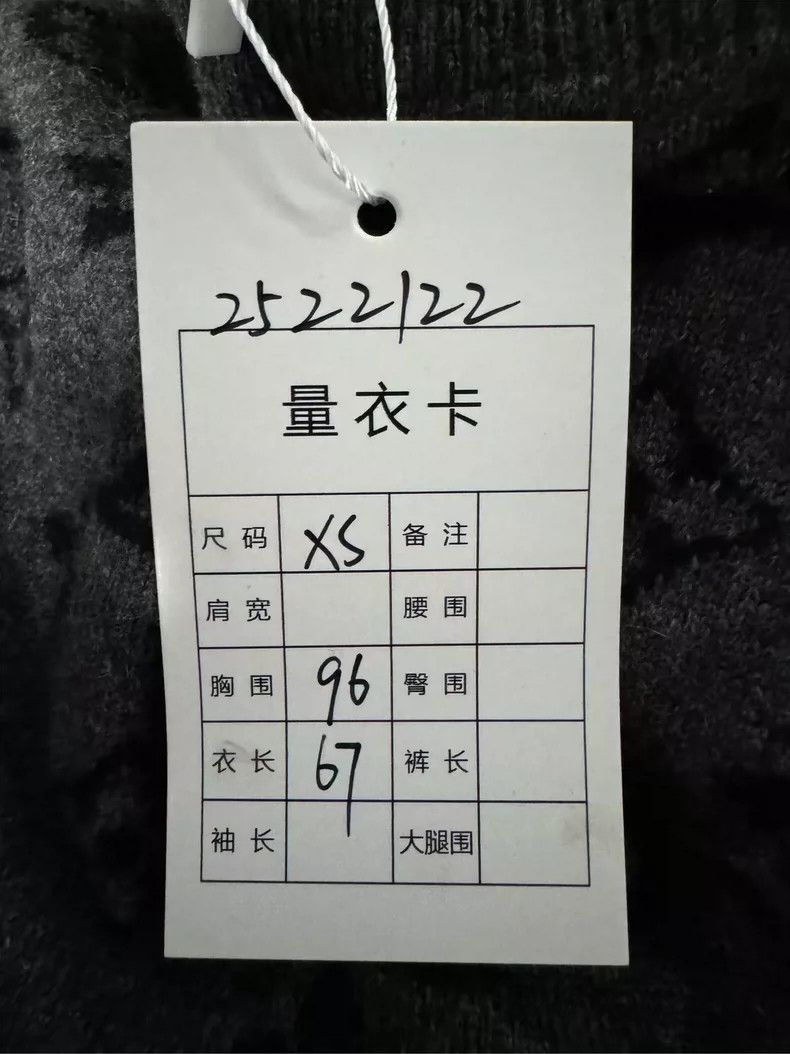 2522122
量衣卡
尺码 XS 备注
肩宽 腰围
胸围 96 臀围
衣长 67 裤长
袖长 大腿围